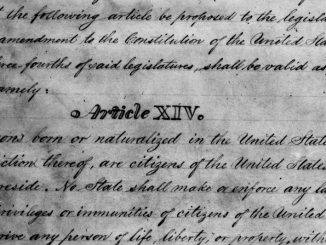 t the following article be proposed to the legisla
amendment to the Constitution of the United Sta
ree-fourths of said legislatures, shall be valid as
amely:
Article XIV.
ons born or naturalized in the United States
iction thereof, are citizens of the United States
reside. No State shall make or enforce any la
rivileges or immunities of citizens of the United
rive any person of life, liberty, or property, with